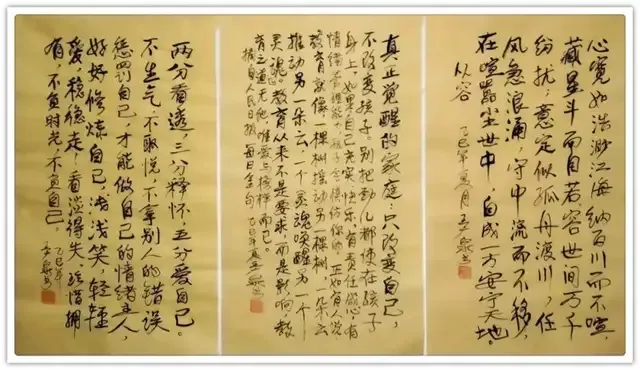 心宽如浩渺江海纳百川而不喧,
藏星斗而自若容世间万千
纷扰;意定似孤舟渡川,任
风急浪涌,守中流而不移,
在喧嚣尘世中,自成一方安宁天地。
从容 乙巳年夏月
真正觉醒的家庭,只改变自己,
不改变孩子。别把劲儿都使在孩子
身上,如果自己充实快乐,有责任心,有
情绪管理能力,孩子会模仿你的。正如有人说
教育就像一棵树摇动另一棵树,一朵云
推动另一朵云,一个灵魂唤醒另一个
灵魂。教育从来不是要求,而是影响,教
育之道无他,唯爱与榜样而已。
摘自人民日报 每日金句 乙巳年夏
两分看透,三分释怀,五分爱自己。
不生气,不取悦,不拿别人的错误
惩罚自己,才能做自己的情绪主人,
好好修炼自己,浅浅笑,轻轻
爱,稳稳走,看淡得失,珍惜拥
有,不负时光,不负自己。
乙巳年